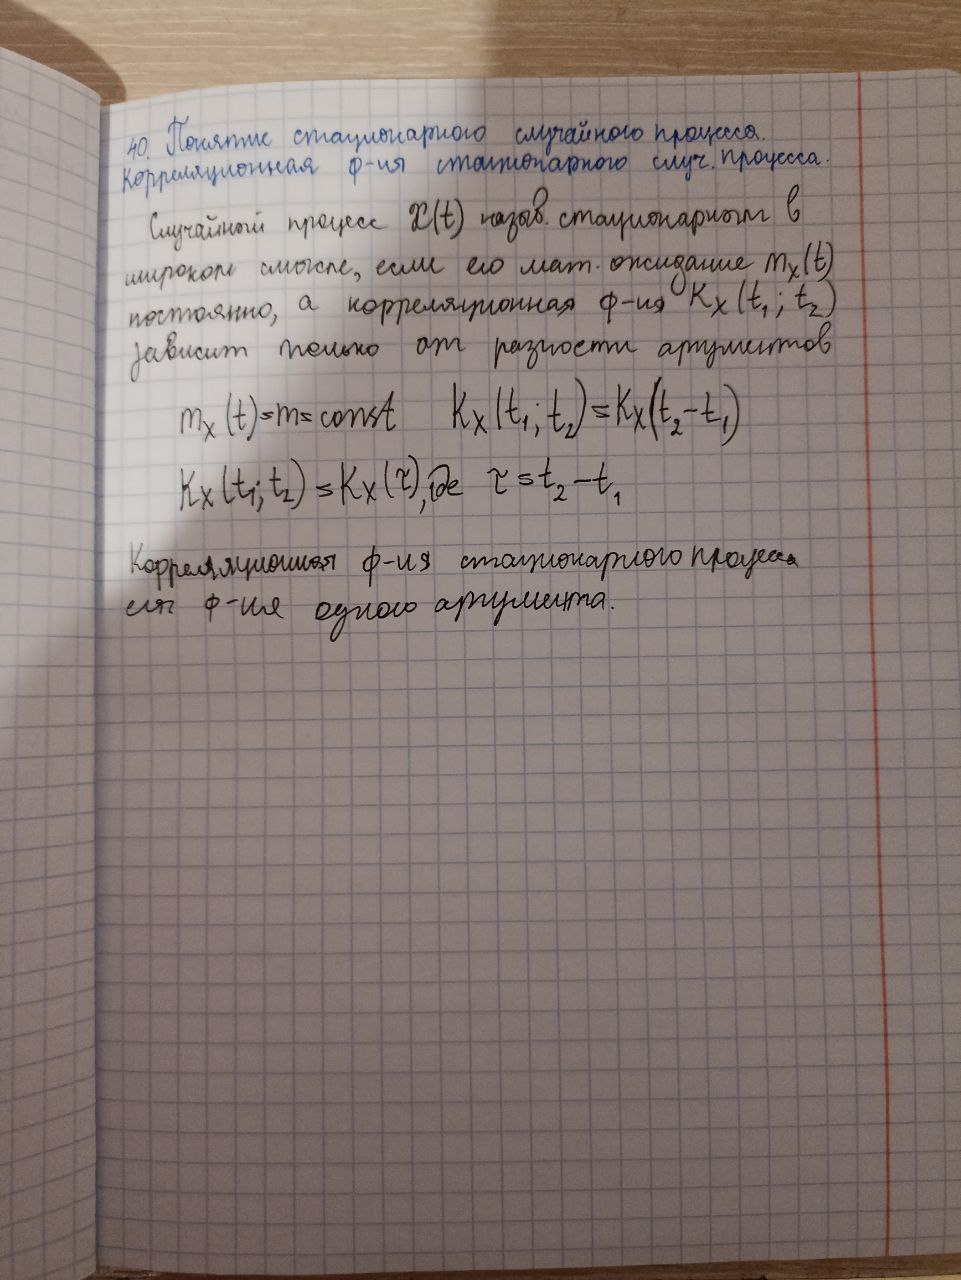 40. Понятие стационарного случайного процесса.
Корреляционная ф-ия стационарного случ. процесса.
Случайный процесс X(t) назыв. стационарным в
широком смысле, если его мат. ожидание m_x(t)
постоянно, а корреляционная ф-ия K_x(t_1; t_2)
зависит только от разности аргументов
m_x(t)=m=const K_x(t_1; t_2)=K_x(t_2-t_1)
K_x(t_1; t_2)=K_x(τ), где τ=t_2-t_1
Корреляционная ф-ия стационарного процесса
ф-ия одного аргумента.